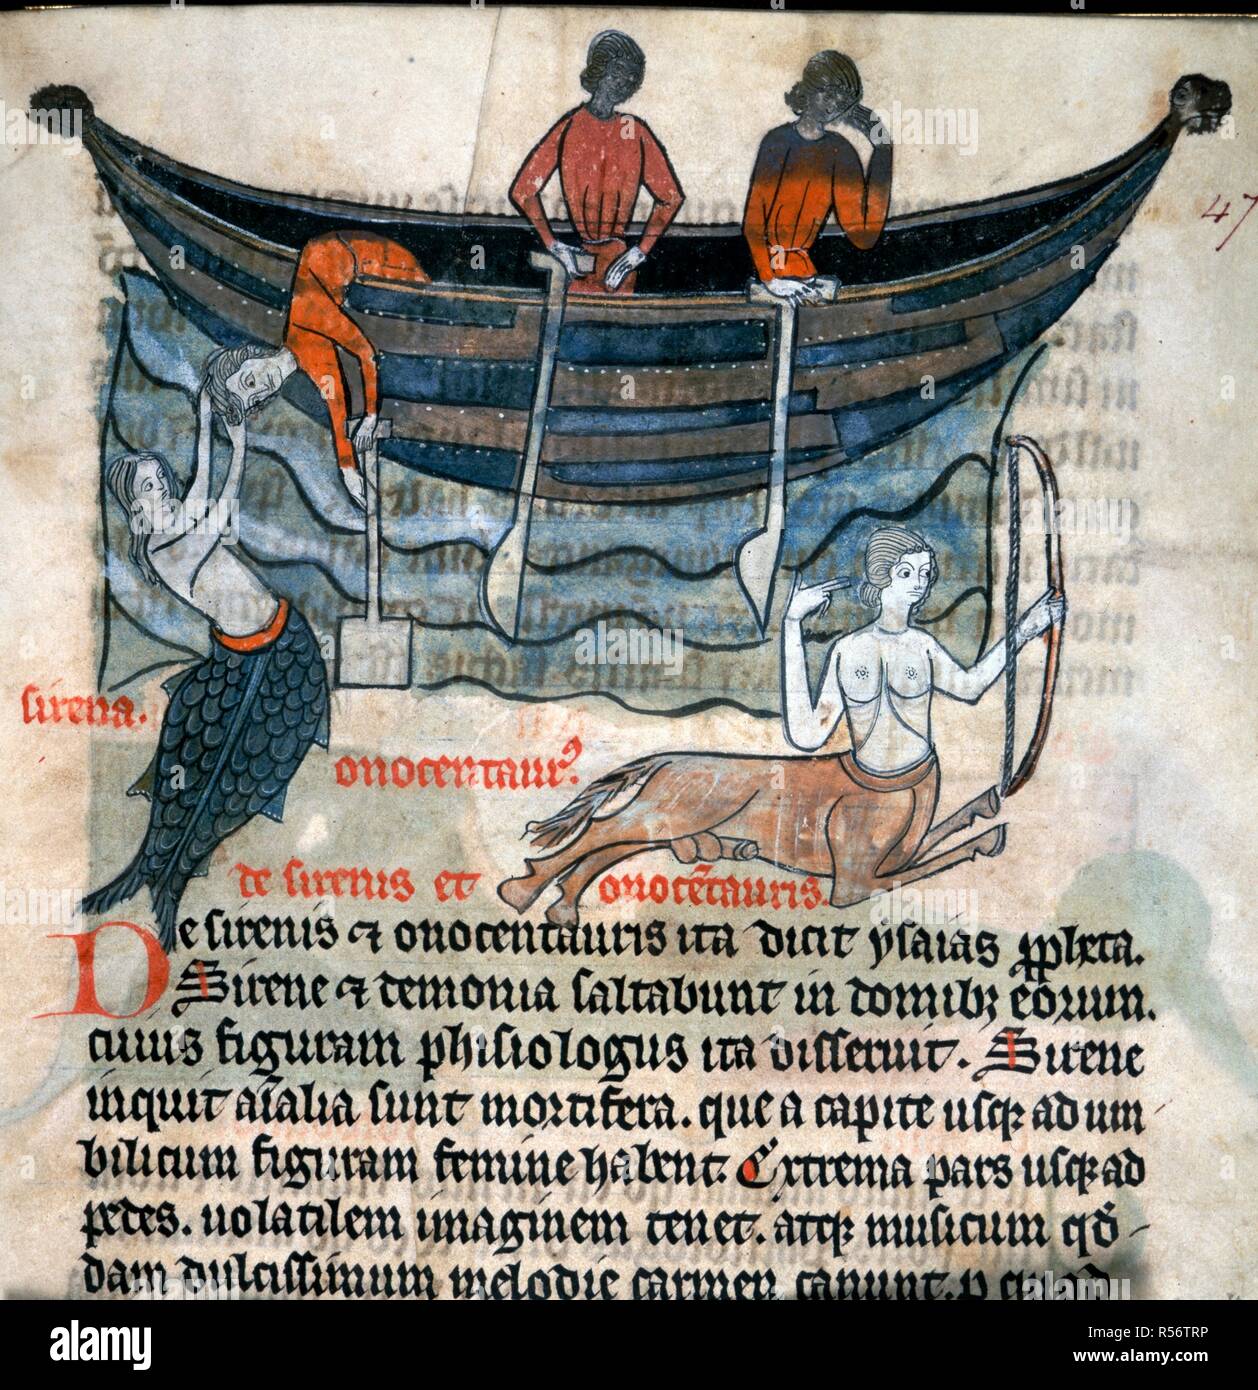 47
sirena.
onocentaurꝰ.
de sirenis et onocētauris.
De sirenis ⁊ onocentauris ita dicit ysaias ꝓpheta.
Sirene ⁊ demonia saltabunt in domibꝫ eorum.
cuius figuram phisiologus ita disseruit. Sirene
inquit aīalia sunt mortifera. que a capite usqꝫ ad um
bilicum figuram femine habent. Extrema pars usqꝫ ad
pedes. uolatilem imaginem tenet. atqꝫ musicum qd̄
dam dulcissimum melodie carmen canunt.
alamy stock photo
Image ID: R56TRP
www.alamy.com